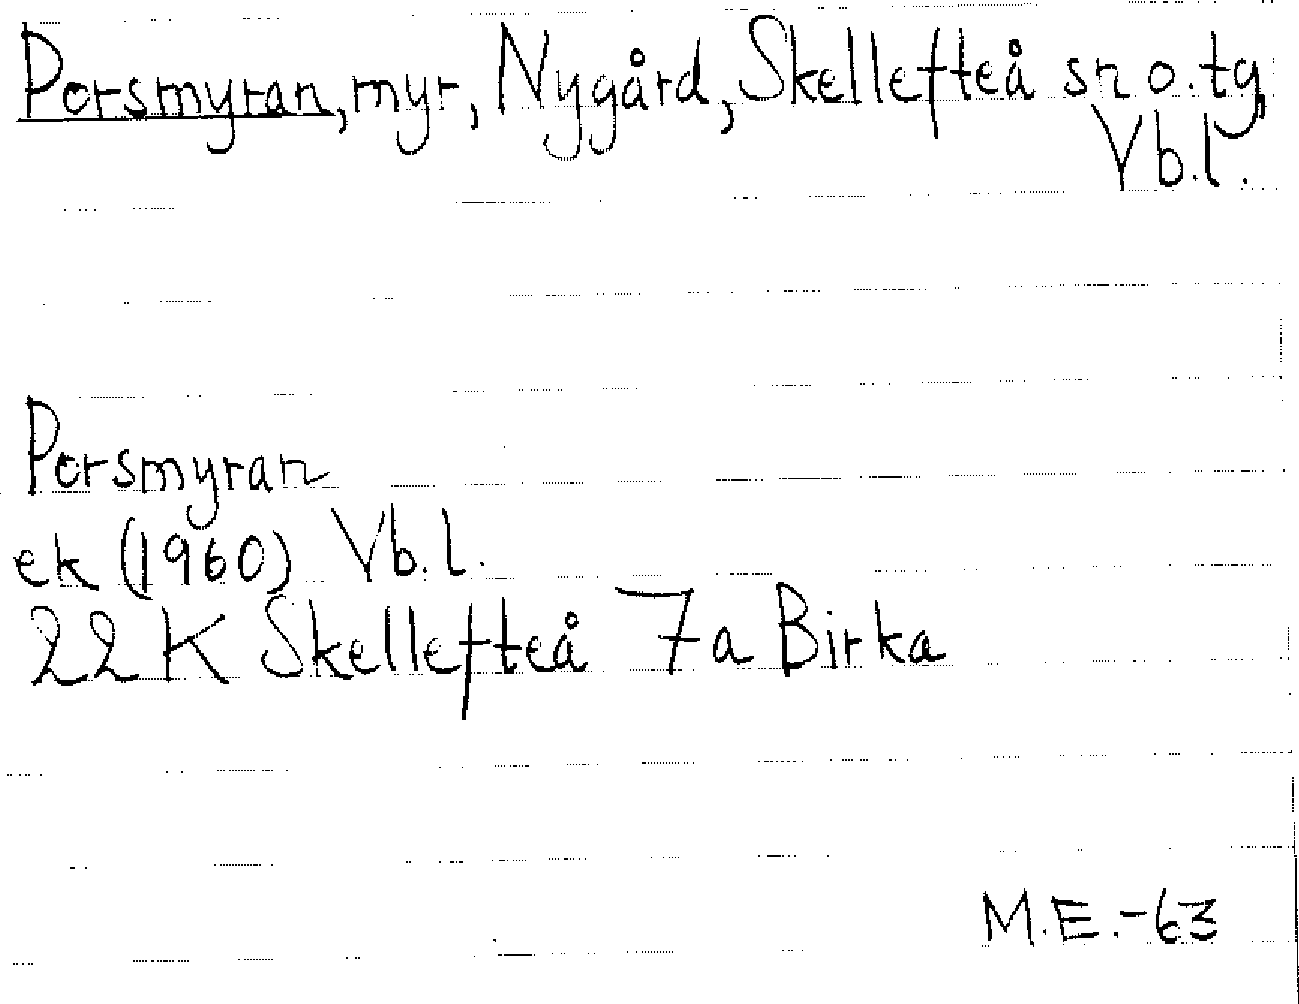 Porsmyran, myr, Nygård, Skellefteå sn o. tg,
Vb.l.
Porsmyran
ek (1960) Vb.l.
22 K Skellefteå 7a Birka
M.E.-63